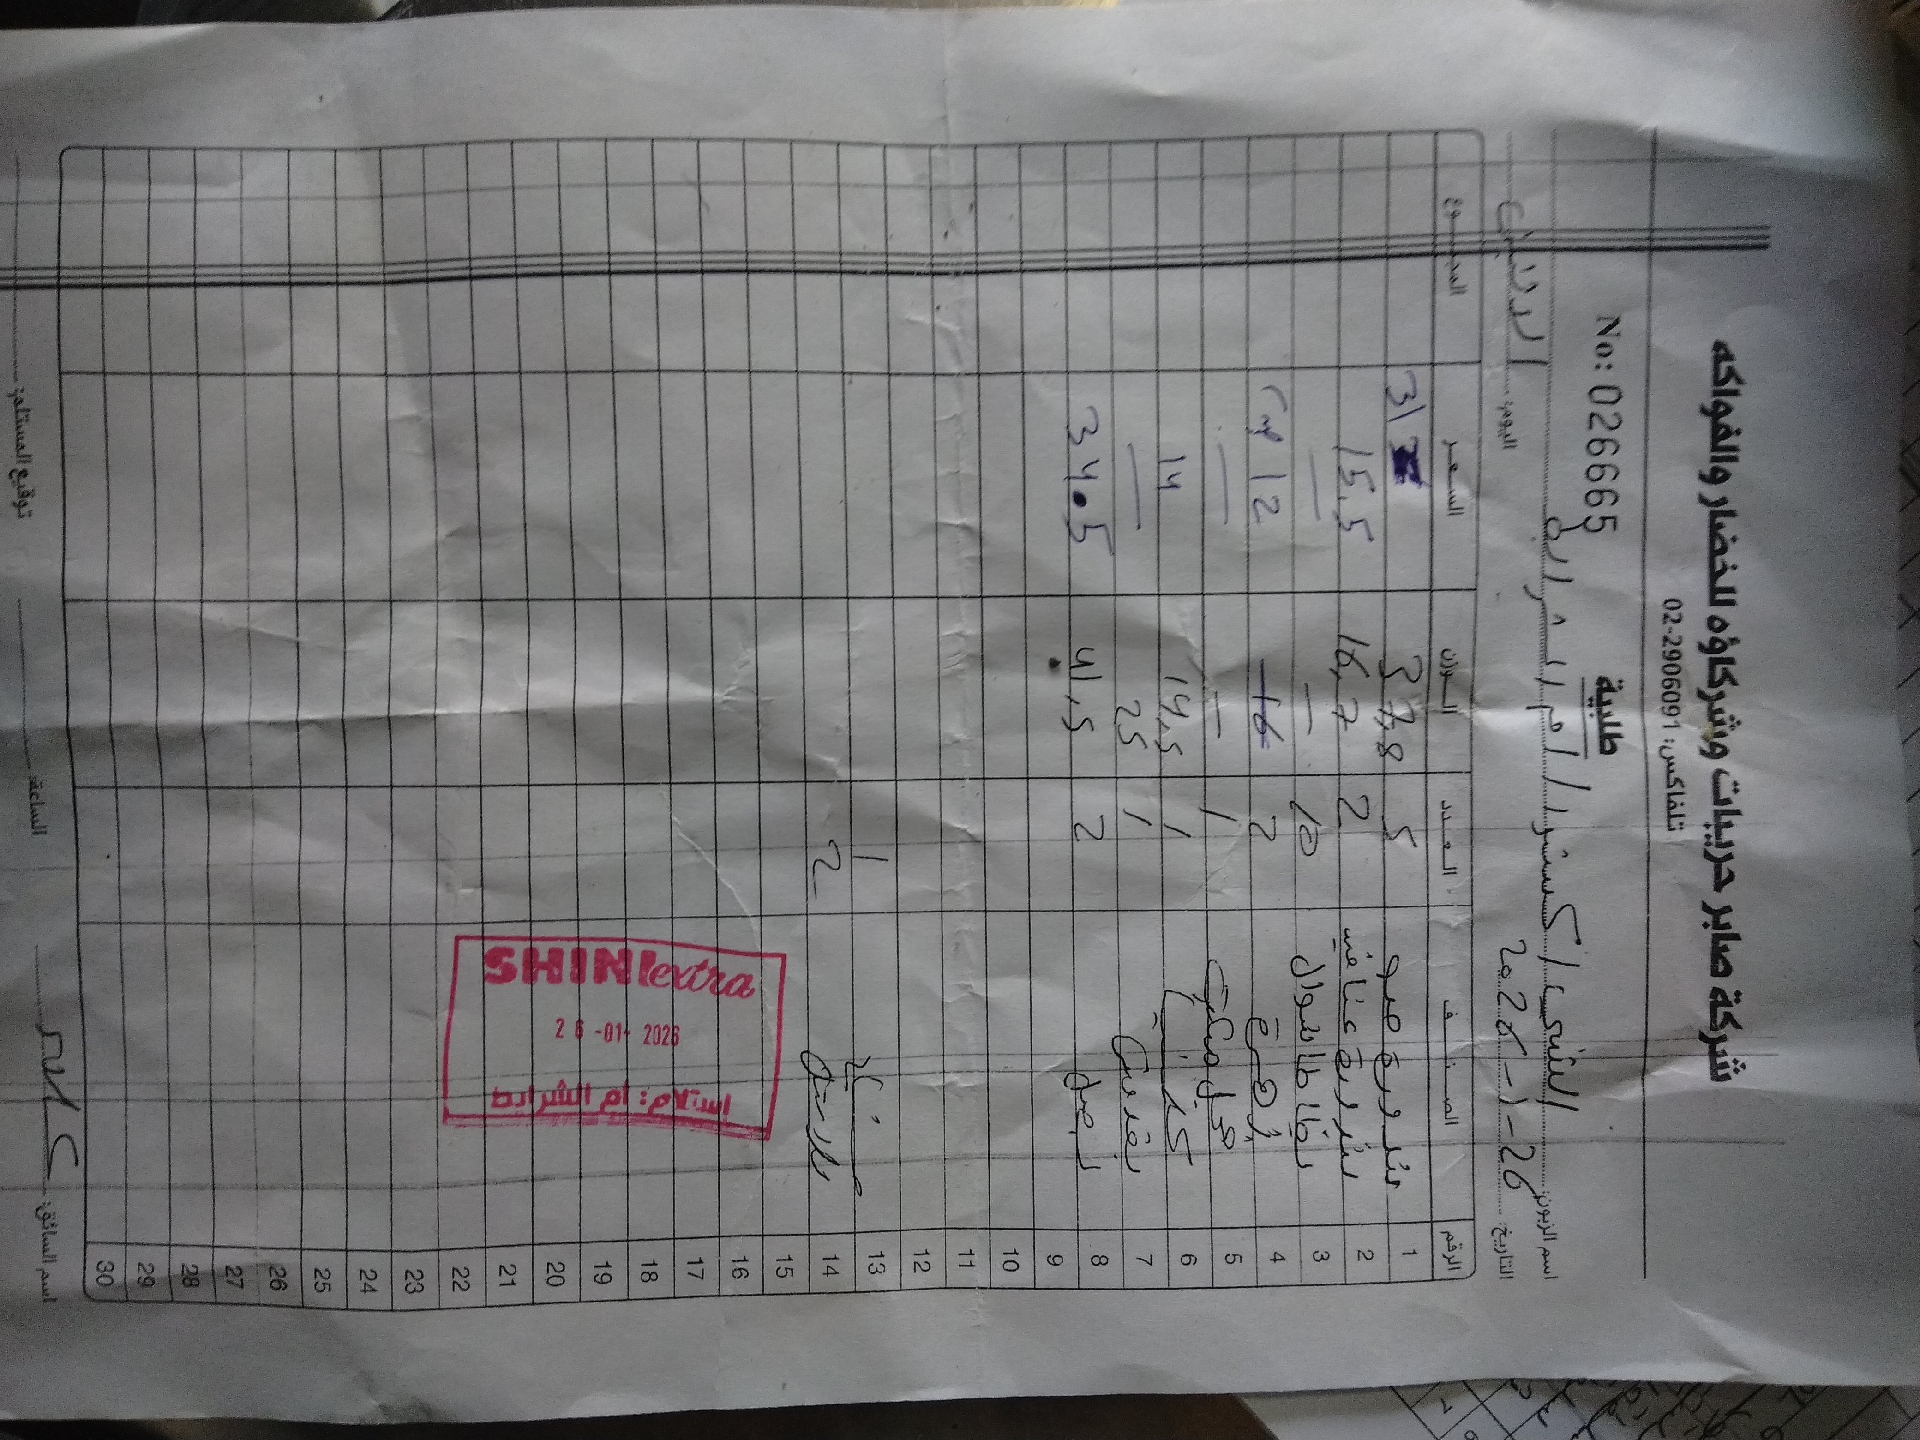 شركة صابر حربيات وشركاؤه للخضار والفواكه
تلفاكس: 02-2906091
طلبية
No: 026665
اسم الزبون: الشني اكسترا / ام الشرايط
التاريخ: 26-1-2026 اليوم: الاثنين
الرقم الصنف العدد الوزن السعر المجموع
1 بندورة 5 37,8 31
2 بندورة عناقيد 2 16,7 15.5
3 بطاطا 10 —
4 زهرة 2 16 12
5 1 — —
6 1 14,5 14
7 بقدونس 1 25 —
8 بصل 2 41,5 34.5
9
10
11
12
13 1
14 2
15
16
17
18
19
20
21
22
23
24
25
26
27
28
29
30
SHINI extra
26-01-2026
استلام: ام الشرايط
اسم السائق: الساعة: توقيع المستلم: